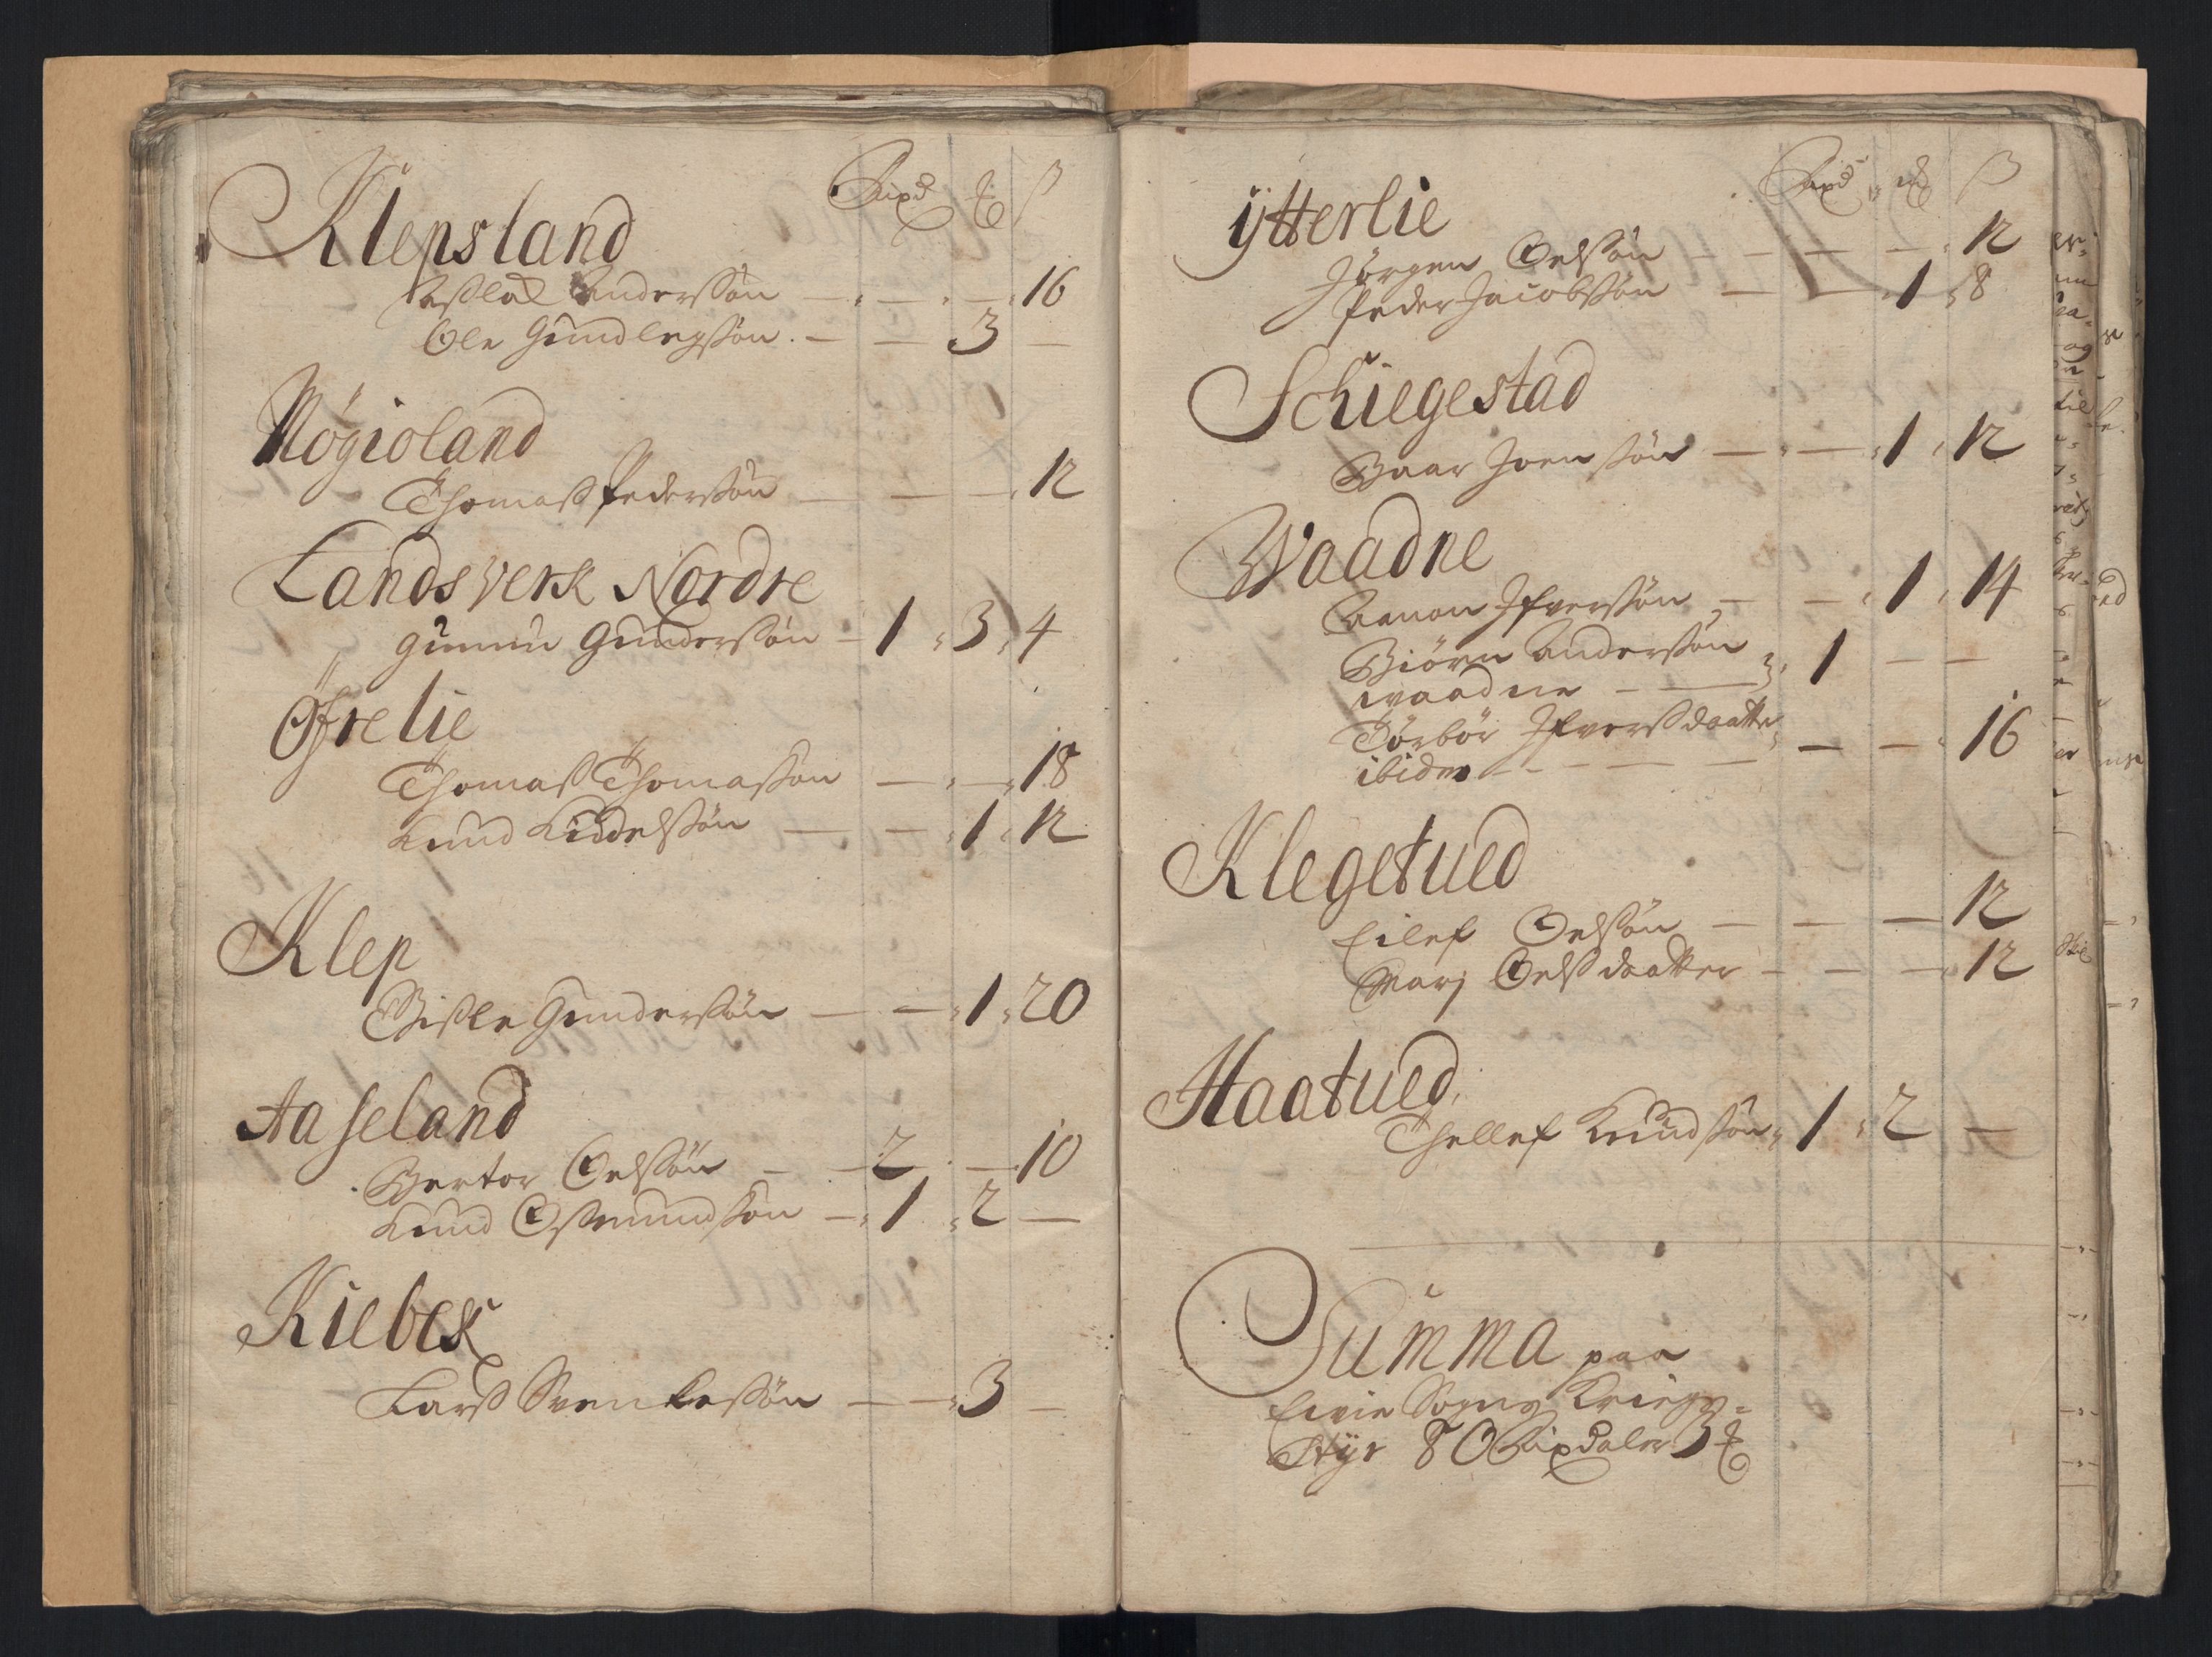 Rixd ℔ ß
Klepsland
Aslad Anderssøn — — — 16
Ole Gundlegssøn. — — 3 —
Møgioland
Thomas Pederssøn — — — 12
Landsverk Nordre
Gunnu Gunderssøn — 1 3 4
Øfrelie
Thomas Thomassøn — — 18
Knud Kiddelssøn — — 1 12
Klep
Gisle Gunderssøn — — 1 20
Aaseland
Bertor Oelssøn — 2 — 10
Knud Osmundssøn — 1 2 —
Kiebek
Larss Svenkessøn — — 3 —
Rixd ℔ ß
ÿtterlie
Jørgen Oelssøn — — — 12
Peder Jacobssøn — — 1 8
Schiegestad
Baar Joenssøn — — 1 12
Waadne
Aanon Ifverssøn — — 1 14
Biørn Anderssøn
waadne — 1 — —
Tørbør Ifverssdaatter
ibidem — — — 16
Klegetued
Eilef Oelssøn — — — 12
Marj Oelssdaatter — — — 12
Haatued
Thellef Knudssøn 1 2 —
Summa paa
Eivie Sogns Kriegs-
Styr 80 Rixdaler 3 ℔